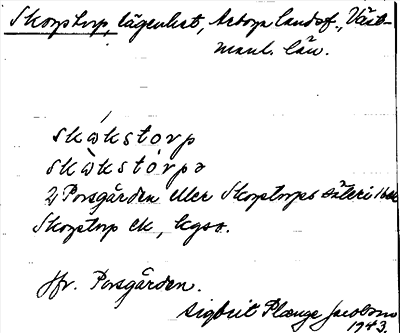 Skorstorp, lägenhet, Arboga landsf., Väst-
manl. län.
skȧkstȯrp
skȧkstȯrpa
2 Porsgården eller Skorstorps säteri
Skorstorp ek, kgso.
Jfr. Porsgården.
Sigbrit Plænge Jacobson
1943.